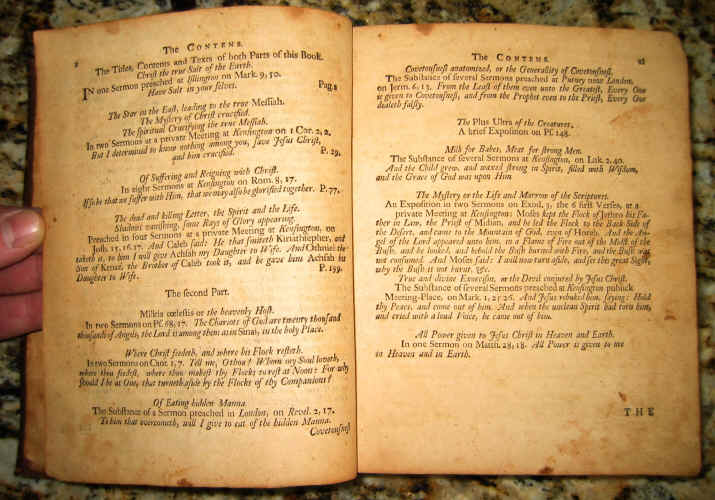 The CONTENS.
The Titles, Contents and Texts of both Parts of this Book.
Christ the true Salt of the Earth.
IN one Sermon preached at Islington on Mark. 9, 50.
Have Salt in your selves. Pag. 1
The Star in the East, leading to the true Messiah.
The Mystery of Christ crucified.
The Spiritual Crucifying the true Messiah.
In two Sermons at a private Meeting at Kensington on 1 Cor. 2, 2.
But I determined to know nothing among you, save Jesus Christ,
and him crucified. P. 29,
Of Suffering and Reigning with Christ.
In eight Sermons at Kensington on Rom. 8, 17.
If so be that we suffer with Him, that we may also be glorified together. P. 77,
The dead and killing Letter, the Spirit and the Life.
Shadows vanishing, some Rays of Glory appearing.
Preached in four Sermons at a private Meeting at Kensington, on
Josh. 15, 16. 17. And Caleb said: He that smiteth Kiriathsepher, and
taketh it, to him I will give Achsah my Daughter to Wife. And Othniel the
Son of Kenaz, the Brother of Caleb took it, and he gave him Achsah his
Daughter to Wife. P. 159.
The second Part.
Militia cœlestis or the heavenly Host.
In two Sermons on Pf. 68, 17. The Chariots of God are twenty thousand
thousands of Angels, the Lord is among them as in Sinai, in the holy Place.
Where Christ feedeth, and where his Flock resteth.
In two Sermons on Cant. 1, 7. Tell me, O thou! Whom my Soul loveth,
where thou feedest, where thou makest thy Flocks to rest at Noon? For why
should I be as One, that turneth aside by the Flocks of thy Companions?
Of Eating hidden Manna.
The Substance of a Sermon preached in London, on Revel. 2, 17.
To him that overcometh, will I give to eat of the hidden Manna.
Covetousness
The CONTENS.
Covetousness anatomized, or the Generality of Covetousness.
The Substance of several Sermons preached at Putney near London,
on Jerm. 6, 13. From the Least of them even unto the Greatest, Every One
is given to Covetousness, and from the Prophet even to the Priest, Every One
dealeth falsly.
The Plus Ultra of the Creatures,
A brief Exposition on Pf. 148.
Milk for Babes, Meat for strong Men.
The Substance of several Sermons at Kensington, on Luk. 2, 40.
And the Child grew, and waxed strong in Spirit, filled with Wisdom,
and the Grace of God was upon Him
The Mystery or the Life and Marrow of the Scriptures.
An Exposition in two Sermons on Exod. 3, the 6 first Verses, at a
private Meeting at Kensington: Moses kept the Flock of Jethro his Fa-
ther in Law, the Priest of Midian, and he led the Flock to the Back Side of
the Desert, and came to the Mountain of God, even of Horeb. And the An-
gel of the Lord appeared unto him, in a Flame of Fire out of the Midst of the
Bush, and he looked, and behold the Bush burned with Fire, and the Bush was
not consumed. And Moses said: I will now turn aside, and see this great Sight,
why the Bush is not burnt, &c.
True and divine Exorcism, or the Devil conjured by Jesus Christ.
The Substance of several Sermons preached at Kensington publick
Meeting-Place, on Mark. 1, 25. 26. And Jesus rebuked him, saying: Hold
thy Peace, and come out of him. And when the unclean Spirit had torn him,
and cried with a loud Voice, he came out of him.
All Power given to Jesus Christ in Heaven and Earth.
In one Sermon on Matth. 28, 18. All Power is given to me
in Heaven and in Earth.
THE